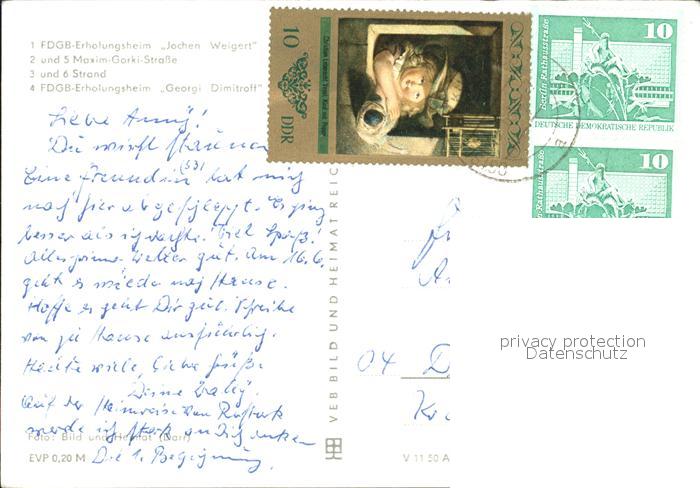 1 FDGB-Erholungsheim „Jochen Weigert"
2 und 5 Maxim-Gorki-Straße
3 und 6 Strand
4 FDGB-Erholungsheim „Georgi Dimitroff"
Liebe Anny!
Du wirst staunen
Eine Freundin (53) hat mich
nach hier abgeschleppt. Es ging
besser als ich dachte! Viel Spaß!
Alles prima. Wetter gut. Am 16.6.
geht es wieder nach Hause.
Hoffe es geht Dir gut. Schreibe
von zu Hause ausführlich.
Heute viele liebe Grüße
Deine
Auf der Heimreise von Rostock
werde ich stark an Dich denken
Die 1. Begegnung.
Foto: Bild und Heimat (Darr)
EVP 0,20 M
VEB BILD UND HEIMAT REIC
V 11 50 A
10
DDR
10
Berlin Rathausstraße
DEUTSCHE DEMOKRATISCHE REPUBLIK
10
n Rathausstraße
04 D
privacy protection
Datenschutz